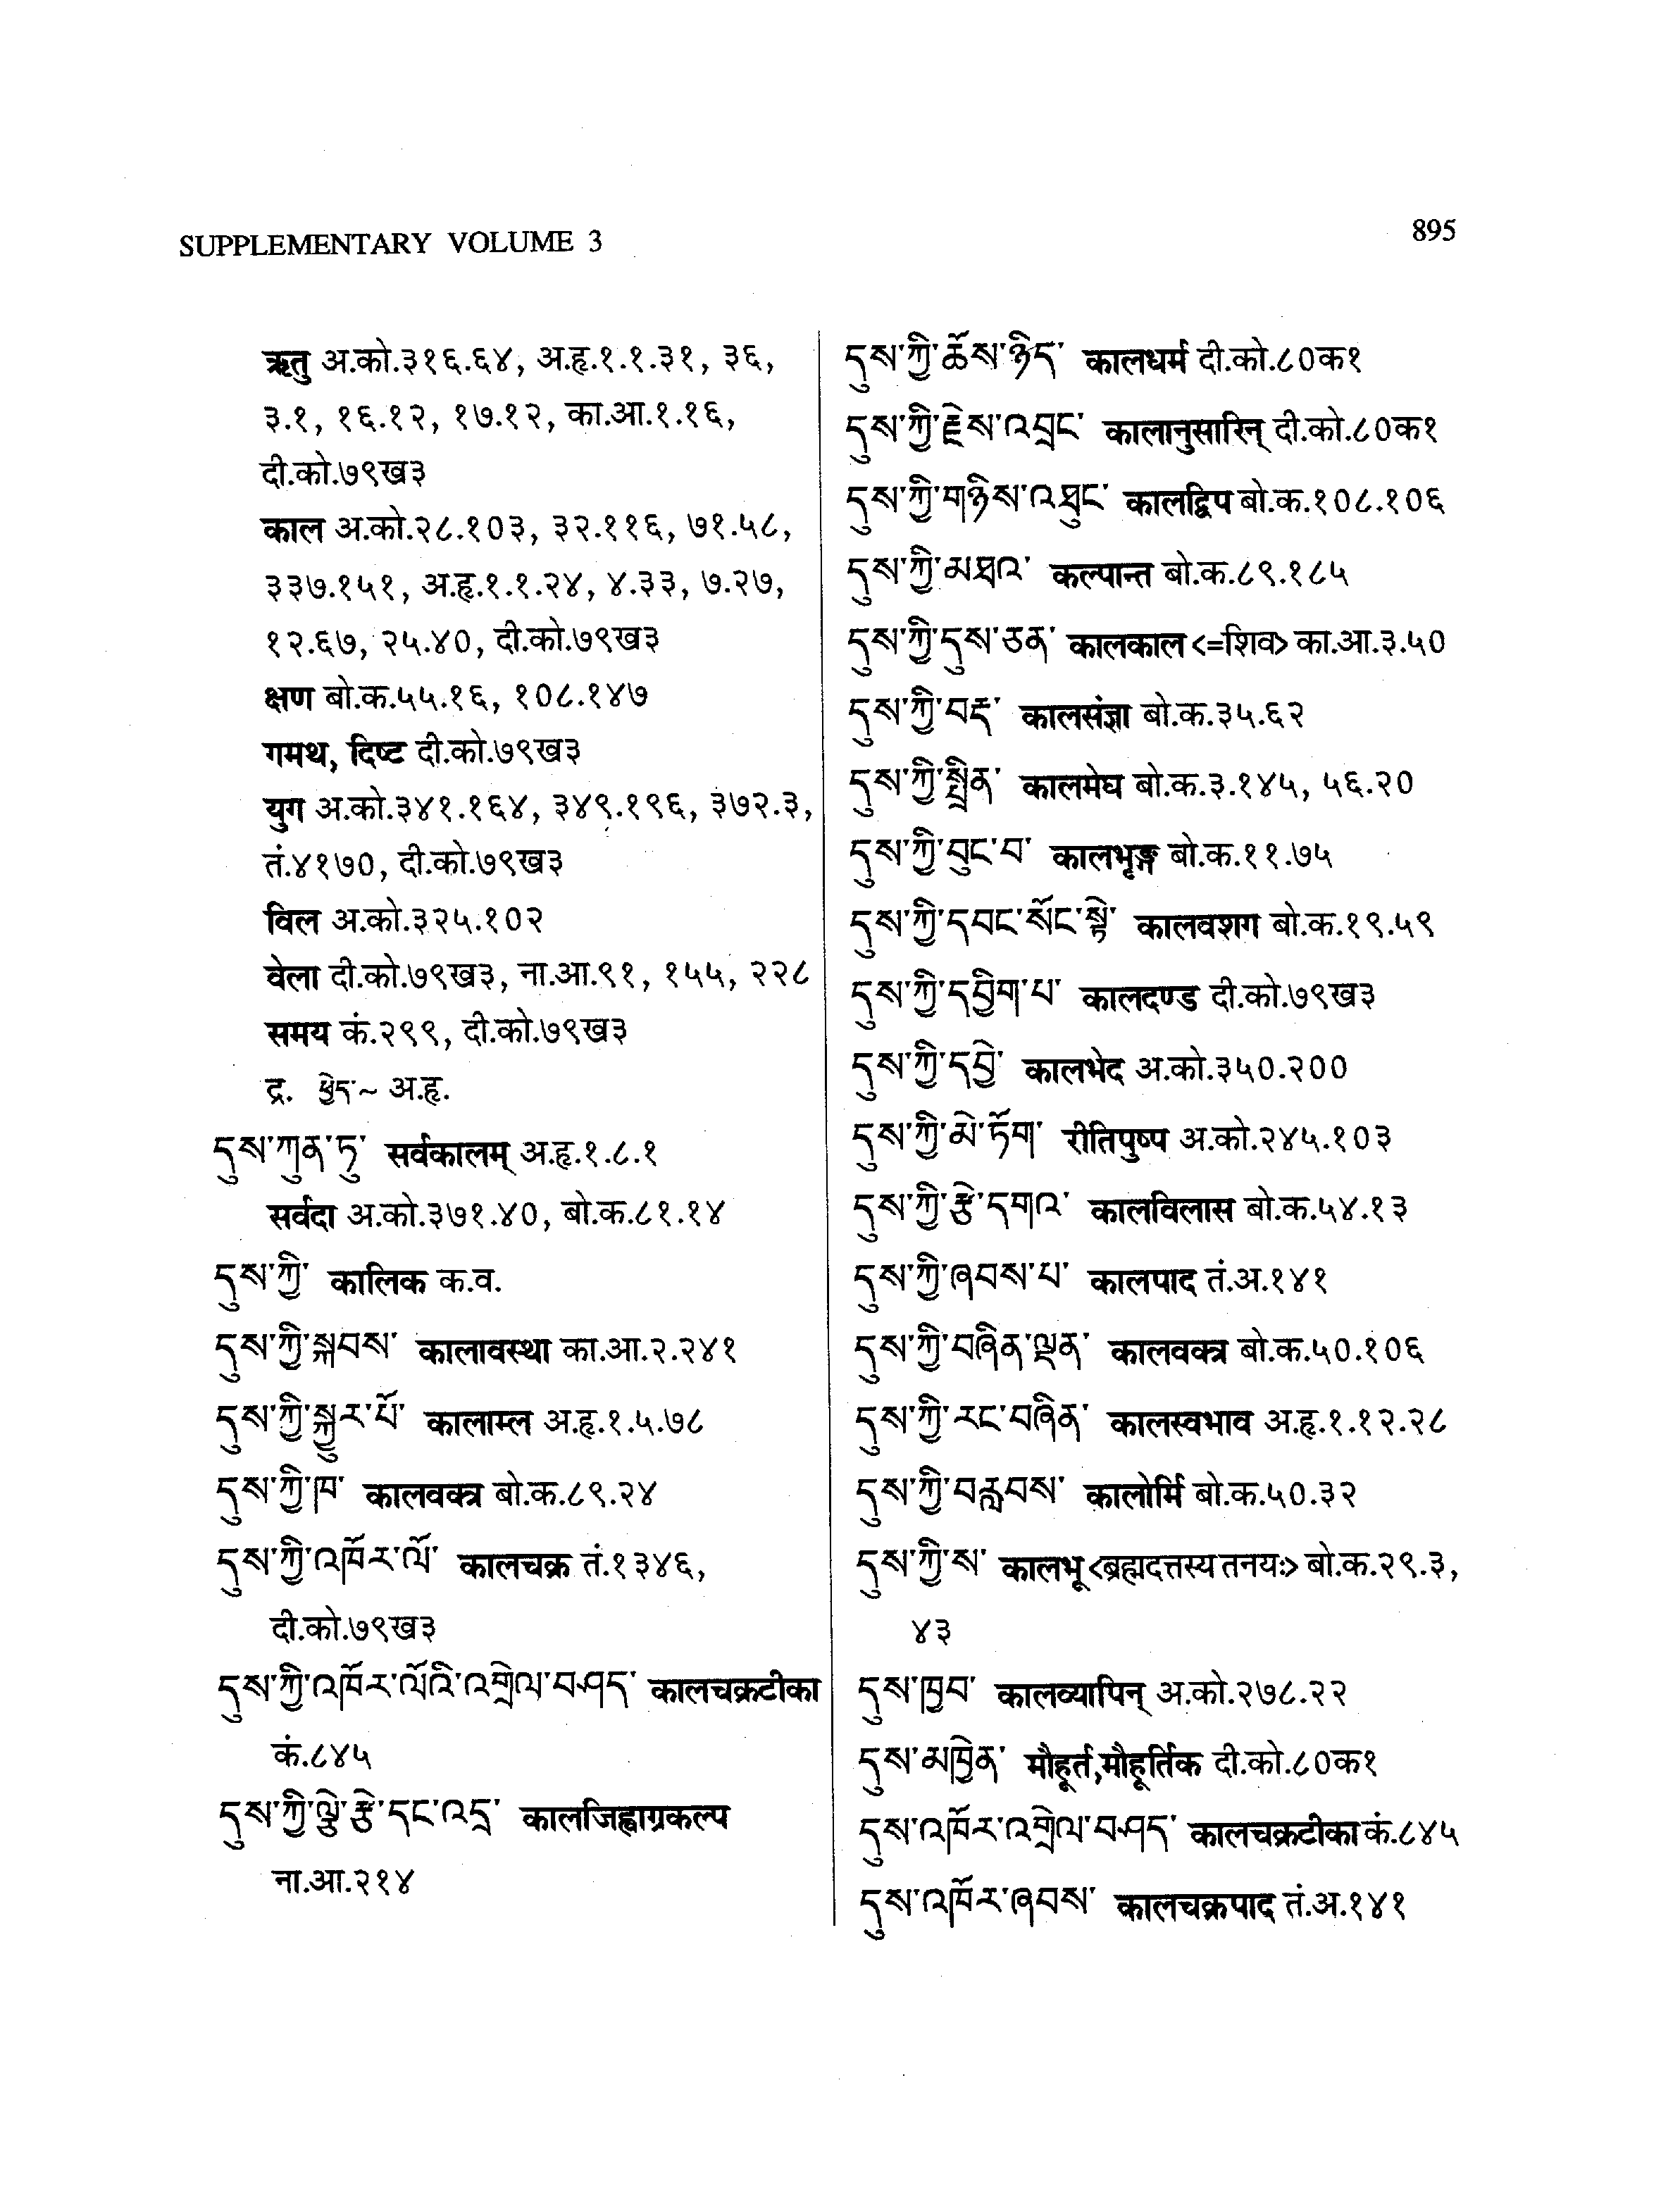 SUPPLEMENTARY VOLUME 3
895
ऋतु अ.को.३१६.६४, अ.हृ.१.१.३१, ३६,
३.१, १६.१२, १७.१२, का.आ.१.१६,
दी.को.७९ख३
काल अ.को.२८.१०३, ३२.११६, ७१.५८,
३३७.१५१, अ.हृ.१.१.२४, ४.३३, ७.२७,
१२.६७, २५.४०, दी.को.७९ख३
क्षण बो.क.५५.१६, १०८.१४७
गमथ, दिष्ट दी.को.७९ख३
युग अ.को.३४१.१६४, ३४९.१९६, ३७२.३,
तं.४१७०, दी.को.७९ख३
विल अ.को.३२५.१०२
वेला दी.को.७९ख३, ना.आ.९१, १५५, २२८
समय कं.२९९, दी.को.७९ख३
द्र. ཕྱེད་~ अ.हृ.
དུས་ཀུན་ཏུ་ सर्वकालम् अ.हृ.१.८.१
सर्वदा अ.को.३७१.४०, बो.क.८१.१४
དུས་ཀྱི་ कालिक क.व.
དུས་ཀྱི་སྐབས་ कालावस्था का.आ.२.२४१
དུས་ཀྱི་སྐྱུར་པོ་ कालाम्ल अ.हृ.१.५.७८
དུས་ཀྱི་ཁ་ कालवक्त्र बो.क.८९.२४
དུས་ཀྱི་འཁོར་ལོ་ कालचक्र तं.१३४६,
दी.को.७९ख३
དུས་ཀྱི་འཁོར་ལོའི་འགྲེལ་བཤད་ कालचक्रटीका
कं.८४५
དུས་ཀྱི་ལྕེ་རྩེ་དང་འདྲ་ कालजिह्वाग्रकल्प
ना.आ.२१४
དུས་ཀྱི་ཆོས་ཉིད་ कालधर्म दी.को.८०क१
དུས་ཀྱི་རྗེས་འབྲང་ कालानुसारिन् दी.को.८०क१
དུས་ཀྱི་གཉིས་འཐུང་ कालद्विप बो.क.१०८.१०६
དུས་ཀྱི་མཐའ་ कल्पान्त बो.क.८९.१८५
དུས་ཀྱི་དུས་ཅན་ कालकाल <=शिव> का.आ.३.५०
དུས་ཀྱི་བརྡ་ कालसंज्ञा बो.क.३५.६२
དུས་ཀྱི་སྤྲིན་ कालमेघ बो.क.३.१४५, ५६.२०
དུས་ཀྱི་བུང་བ་ कालभृङ्ग बो.क.११.७५
དུས་ཀྱི་དབང་སོང་སྟེ་ कालवशग बो.क.१९.५९
དུས་ཀྱི་དབྱིག་པ་ कालदण्ड दी.को.७९ख३
དུས་ཀྱི་དབྱེ་ कालभेद अ.को.३५०.२००
དུས་ཀྱི་མེ་ཏོག་ रीतिपुष्प अ.को.२४५.१०३
དུས་ཀྱི་རྩེ་དགའ་ कालविलास बो.क.५४.१३
དུས་ཀྱི་ཞབས་པ་ कालपाद तं.अ.१४१
དུས་ཀྱི་བཞིན་ལྡན་ कालवक्त्र बो.क.५०.१०६
དུས་ཀྱི་རང་བཞིན་ कालस्वभाव अ.हृ.१.१२.२८
དུས་ཀྱི་བརླབས་ कालोर्मि बो.क.५०.३२
དུས་ཀྱི་ས་ कालभू <ब्रह्मदत्तस्य तनयः> बो.क.२९.३,
४३
དུས་ཁྱབ་ कालव्यापिन् अ.को.२७८.२२
དུས་མཁྱེན་ मौहूर्त,मौहूर्तिक दी.को.८०क१
དུས་འཁོར་འགྲེལ་བཤད་ कालचक्रटीका कं.८४५
དུས་འཁོར་ཞབས་ कालचक्रपाद तं.अ.१४१